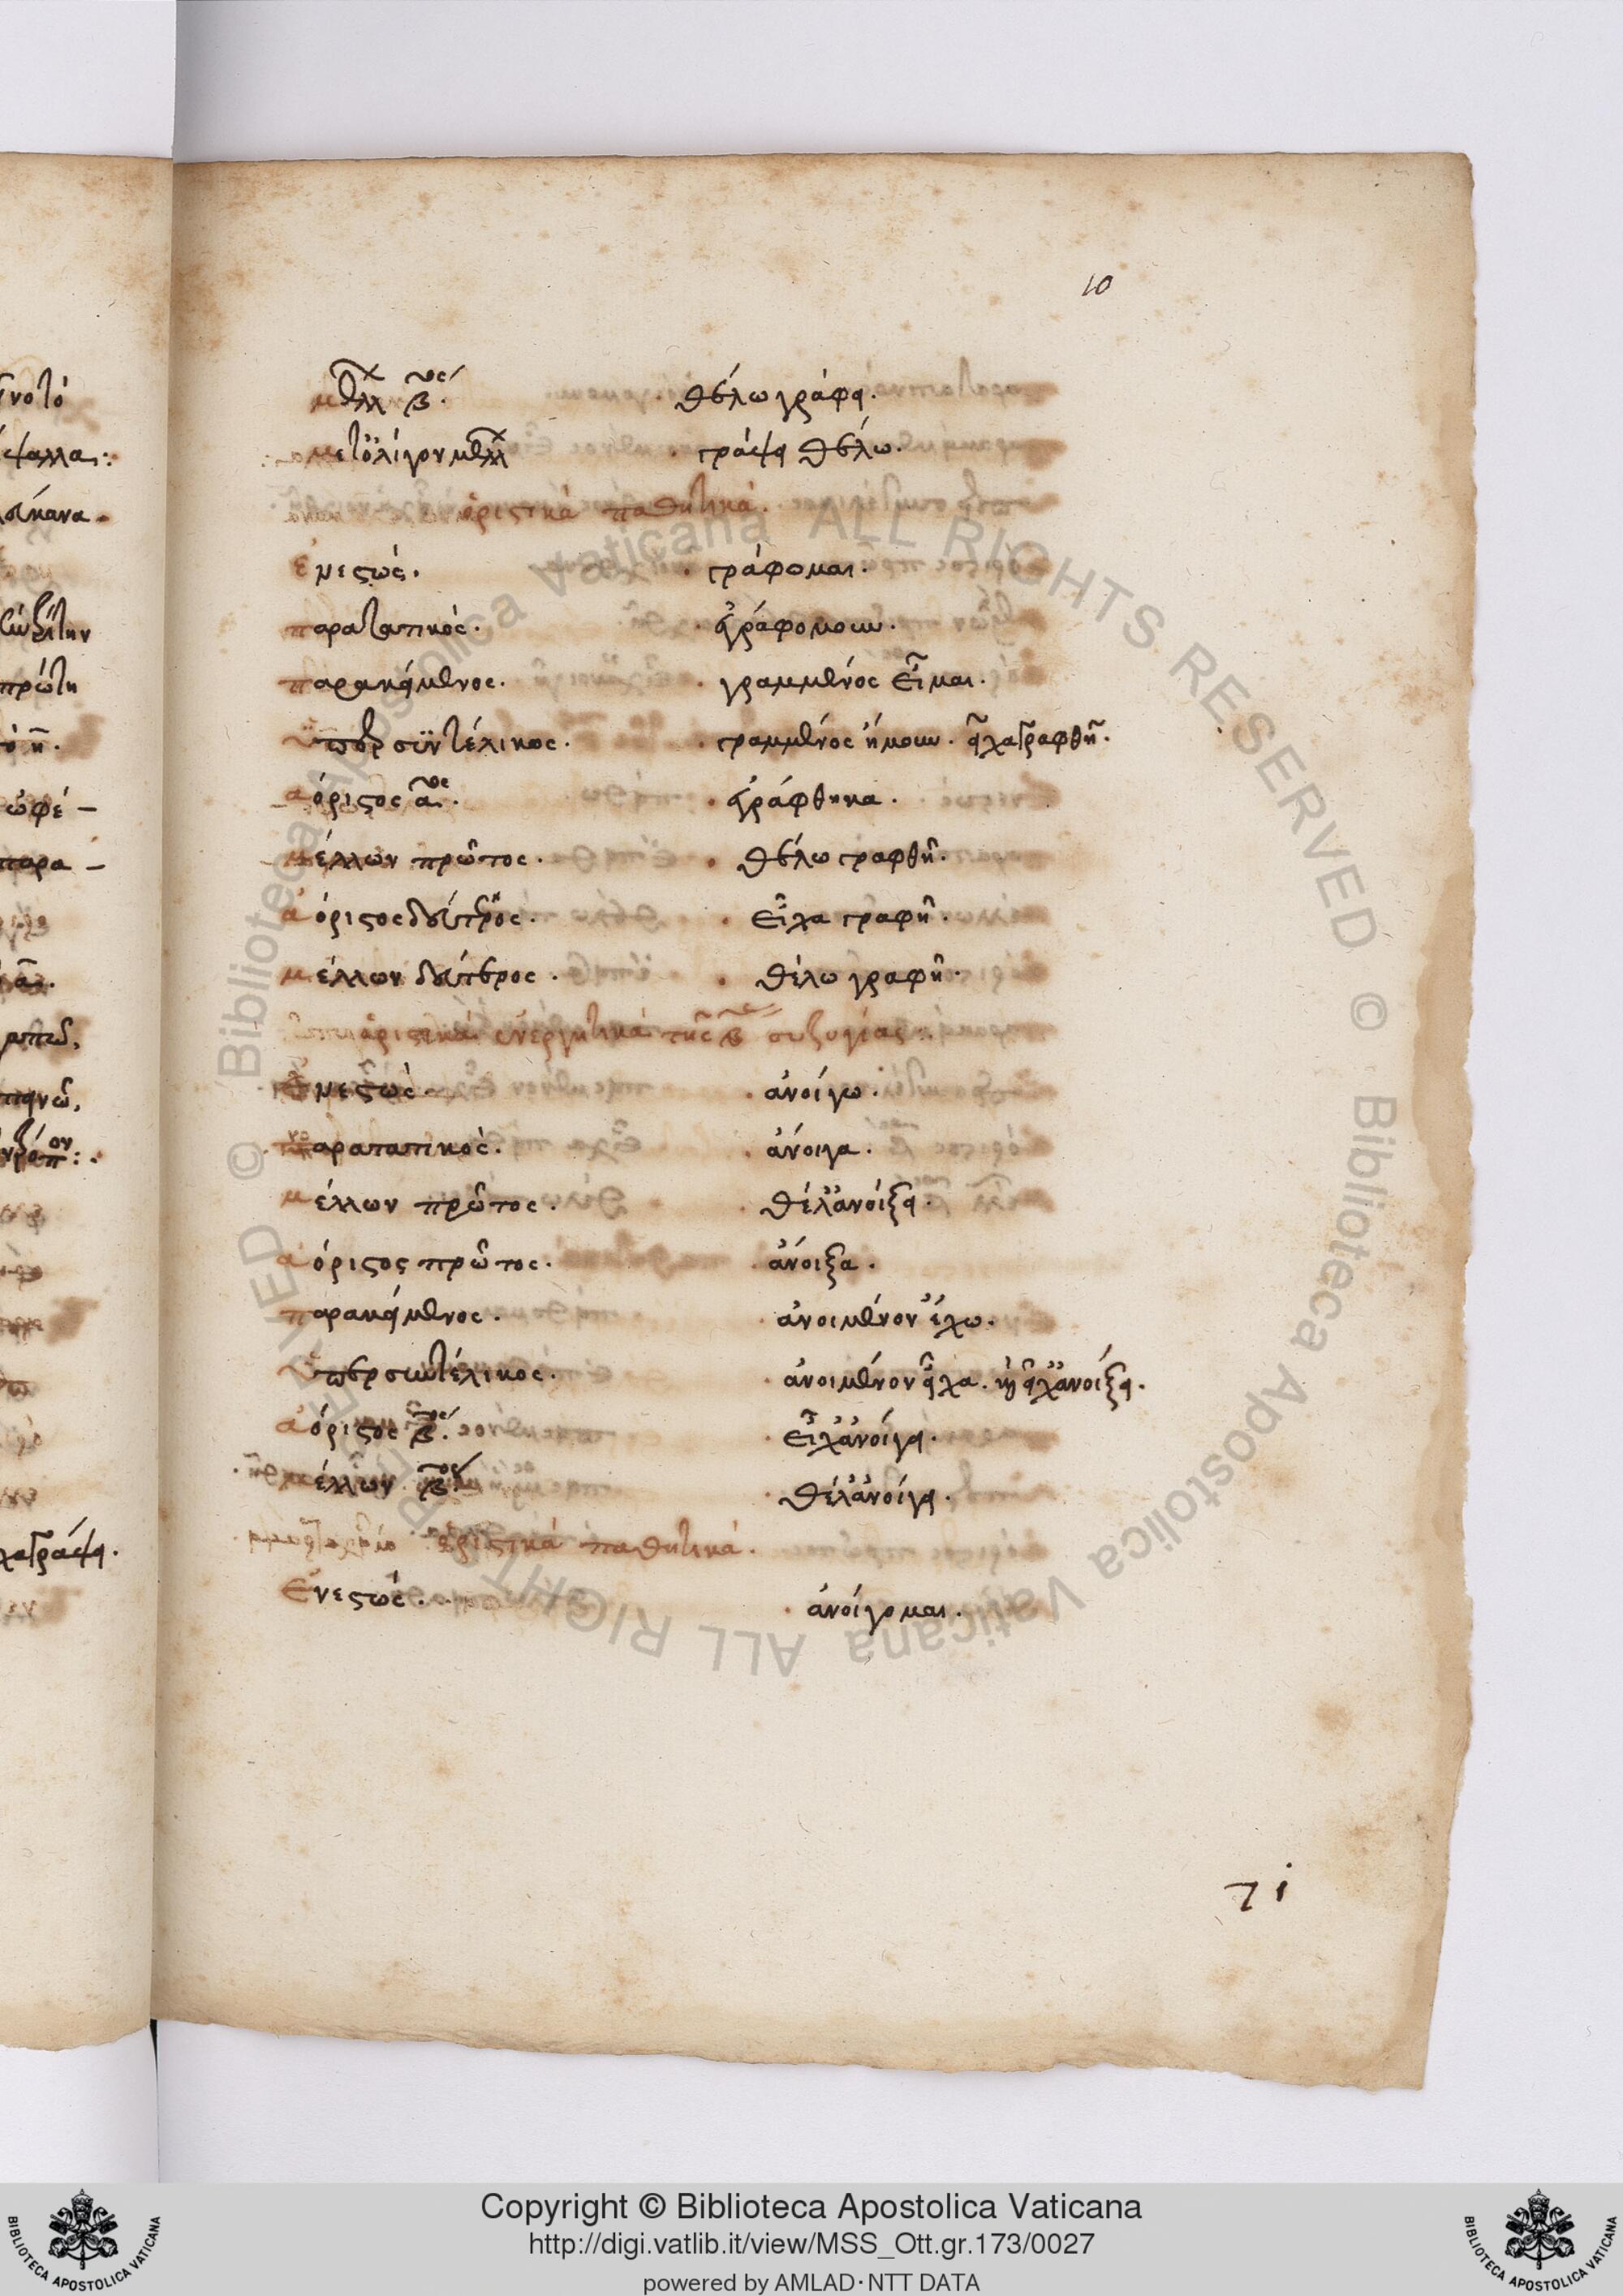 10
μέλλ β^ος. θέλω γράφει.
μετ' ὀλίγον μέλλ γράψει θέλω.
ὁριστικὰ παθητικά.
ἐνεστώς. γράφομαι.
παρατατικός. ἐγράφομουν.
παρακείμενος. γραμμένος εἶμαι.
ὑπερσυντέλικος. γραμμένος ἤμουν. εἶχα γραφθῆ.
ἀόριστος α^ος. ἐγράφθηκα.
μέλλων πρῶτος. θέλω γραφθῆ.
ἀόριστος δεύτερος. εἶχα γραφῆ.
μέλλων δεύτερος. θέλω γραφῆ.
ὁριστικὰ ἐνεργητικὰ τῆς β συζυγίας.
Ἐνεστώς. ἀνοίγω.
παρατατικός. ἄνοιγα.
μέλλων πρῶτος. θέλ' ἀνοίξει.
ἀόριστος πρῶτος. ἄνοιξα.
παρακείμενος. ἀνοιμένον ἔχω.
Ὑπερσυντέλικος. ἀνοιμένον εἶχα. καὶ εἶχ' ἀνοίξει.
ἀόριστος β^ος. εἶχ' ἀνοίγει.
μέλλων β^ος θέλ' ἀνοίγει.
ὁριστικὰ παθητικά.
Ἐνεστώς. ἀνοίγομαι.
71
Copyright © Biblioteca Apostolica Vaticana
http://digi.vatlib.it/view/MSS_Ott.gr.173/0027
powered by AMLAD · NTT DATA
BIBLIOTECA APOSTOLICA VATICANA
BIBLIOTECA APOSTOLICA VATICANA
© Biblioteca Apostolica Vaticana ALL RIGHTS RESERVED © Biblioteca Apostolica Vaticana ALL RIGHTS RESERVED